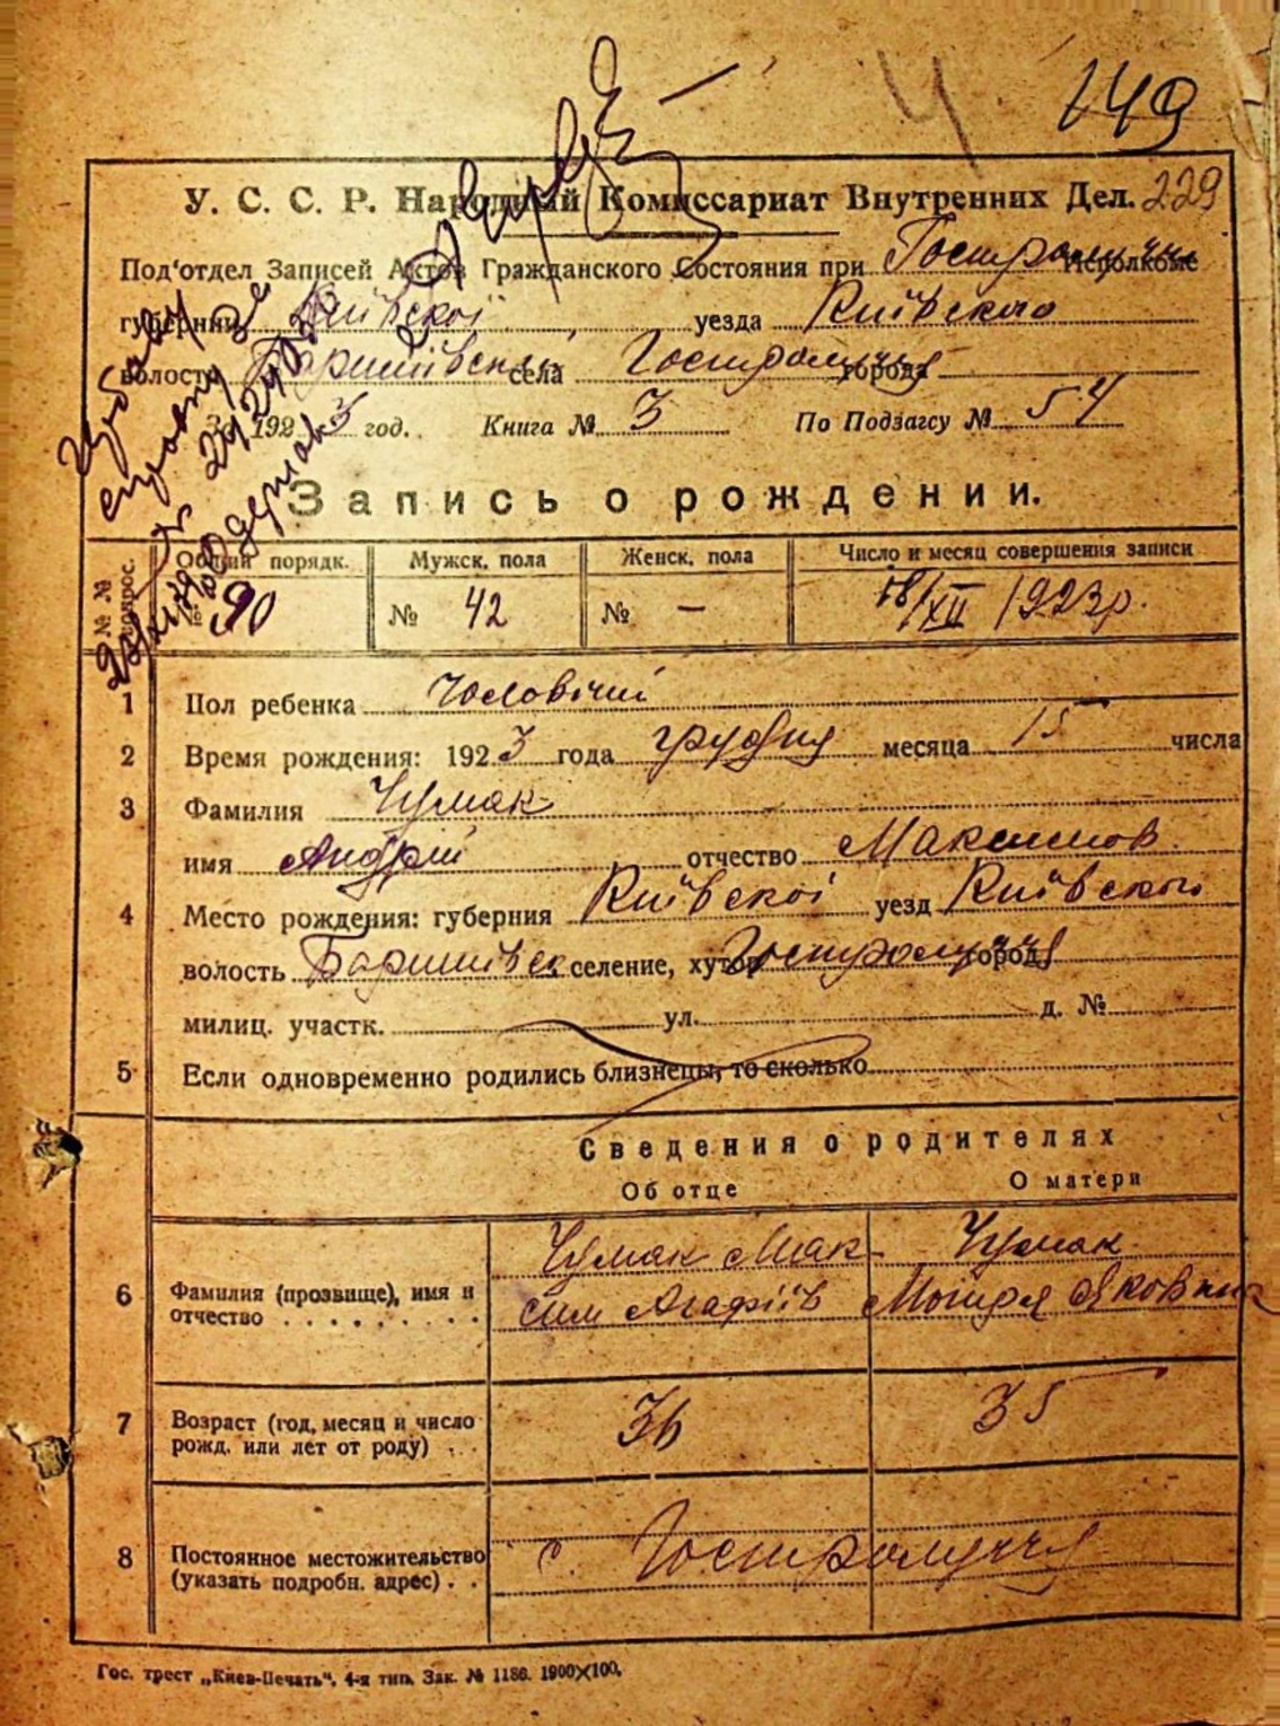 149
У. С. С. Р. Народный Комиссариат Внутренних Дел. 229
Под'отдел Записей Актов Гражданского Состояния при Гостролуччі Исполкоме
губернии Київскоі уезда Київского
волости Баришівскоі села Гостролуччя города —
За 1923 год. Книга № 3 По Подзагсу № 54
Запись о рождении.
№ № вопрос. Общий порядк. Мужск. пола Женск. пола Число и месяц совершения записи
№ 90 № 42 № — 18/XII 1923р.
1 Пол ребенка Чоловічий
2 Время рождения: 1923 года грудня месяца 15 числа
3 Фамилия Чумак
имя Андрій отчество Максимов.
4 Место рождения: губерния Київскоі уезд Київского
волость Баришівск селение, хутор Гостролуччя город
милиц. участк. ул. д. №
5 Если одновременно родились близнецы, то сколько
Сведения о родителях
Об отце О матери
6 Фамилия (прозвище), имя и отчество Чумак Мак- Чумак
сим Агафіів Мотря Яковна
7 Возраст (год, месяц и число рожд. или лет от роду) 36 35
8 Постоянное местожительство (указать подробн. адрес) с. Гостролуччя
Гос. трест „Киев-Печать“, 4-я тип. Зак. № 1186. 1900×100.